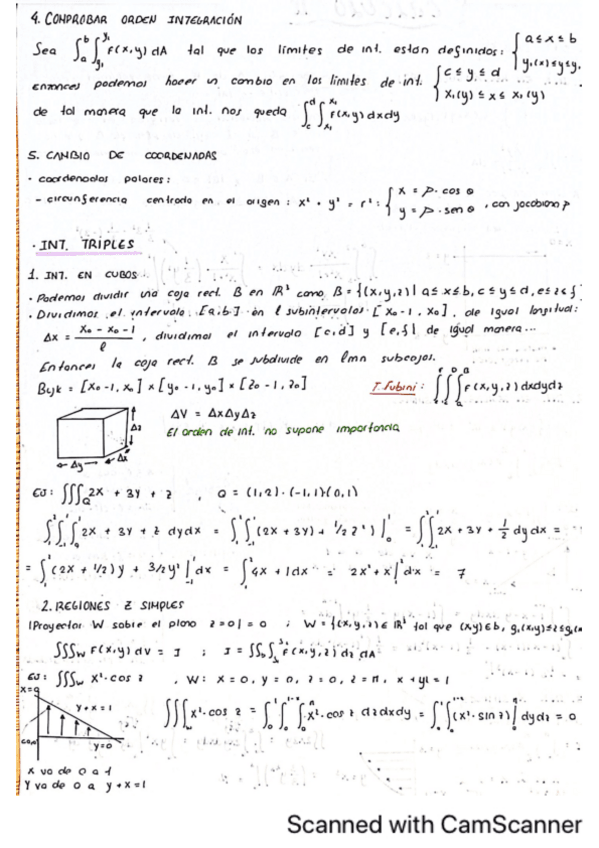 4. COMPROBAR ORDEN INTEGRACIÓN
Sea ∫_a^b ∫_{y₁}^{y₂} F(x,y) dA tal que los límites de int. estan definidos: { a ≤ x ≤ b
y₁(x) ≤ y ≤ y
entonces podemos hacer un cambio en los límites de int. { c ≤ y ≤ d
x₁(y) ≤ x ≤ x₂(y)
de tal manera que la int. nos queda ∫_c^d ∫_{x₁}^{x₂} F(x,y) dxdy
5. CAMBIO DE COORDENADAS
· coordenadas polares:
- circunferencia centrada en el origen: x² + y² = r² : { x = ρ · cos θ
y = ρ · sen θ , con jacobiano ρ
· INT. TRIPLES
1. INT. EN CUBOS
· Podemos dividir una caja rect. B en ℝ³ como B = {(x,y,z) | a ≤ x ≤ b, c ≤ y ≤ d, e ≤ z ≤ f}
· Dividimos el intervalo [a,b] en l subintervalos [x₀-1, x₀], de igual longitud:
Δx = (x₀ - x₀-1)/l , dividimos el intervalo [c,d] y [e,f] de igual manera...
Entonces la caja rect. B se subdivide en lmn subcajas.
Bijk = [x₀-1, x₀] × [y₀-1, y₀] × [z₀-1, z₀]
T. Fubini: ∫∫∫ F(x,y,z) dxdydz
ΔV = ΔxΔyΔz
El orden de int. no supone importancia
Δz
Δy
Δx
EJ: ∫∫∫_Q 2x + 3y + z , Q = (1,2)·(-1,1)(0,1)
∫∫∫ 2x + 3y + z dydx = ∫∫ (2x + 3y) + 1/2 z²) |₀¹ = ∫∫ 2x + 3y + 1/2 dydx =
= ∫ (2x + 1/2) y + 3/2 y² |₋₁¹ dx = ∫ 4x + 1 dx = 2x² + x | dx = 7
2. REGIONES Z SIMPLES
(Proyectar W sobre el plano z=0) = 0 ; W = {(x,y,z) ∈ ℝ³ tal que (x,y) ∈ b, g₁(x,y) ≤ z ≤ g₂(x
∫∫∫_W F(x,y) dv = I ; I = ∫∫_b ∫ F(x,y,z) dz dA
EJ: ∫∫∫_W x² · cos z , W: x = 0, y = 0, z = 0, z = π, x + y = 1
x=0
y + x = 1
y=0
∫∫∫_W x² · cos z = ∫₀¹ ∫₀^{1-x} ∫₀^π x² · cos z dzdxdy = ∫₀¹ ∫₀^{1-x} (x² · sin z) |₀^π dydz = 0
x va de 0 a 1
Y va de 0 a y + x = 1
Scanned with CamScanner